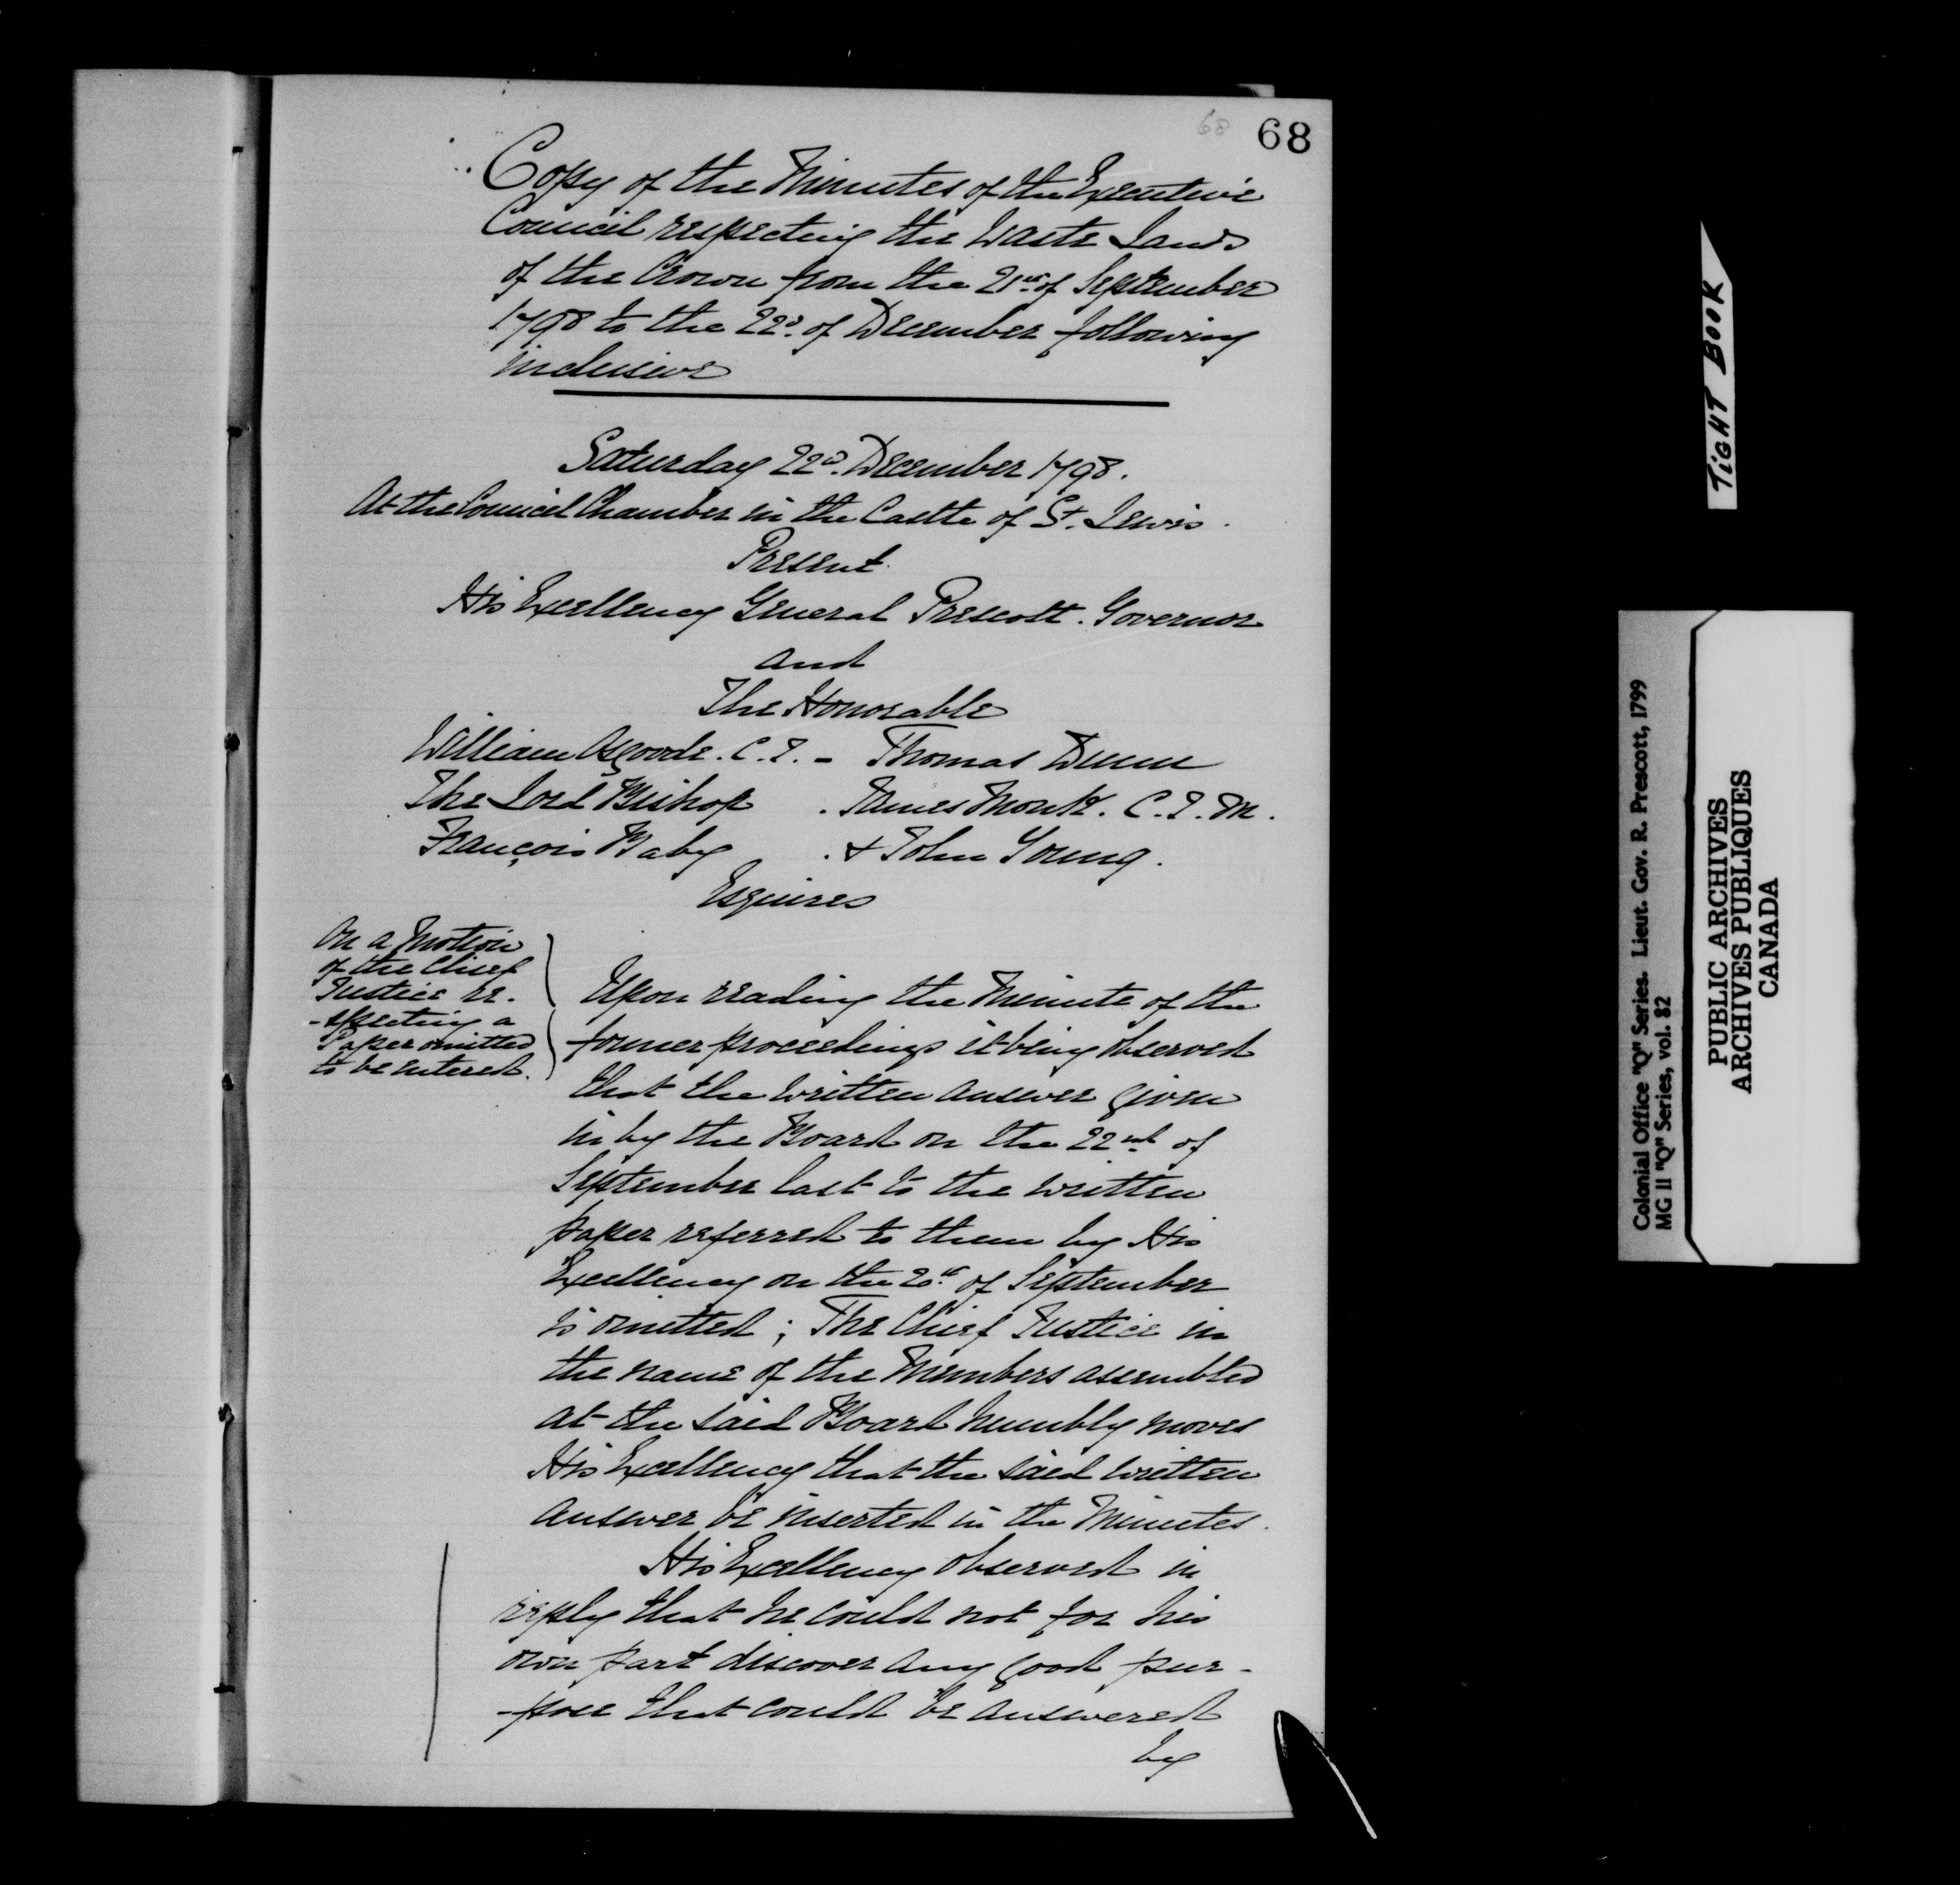 68 68
Copy of the Minutes of the Executive
Council respecting the Waste Lands
of the Crown from the 21st of September
1798 to the 22d. of December following
inclusive
Saturday 22d. December 1798.
At the Council Chamber in the Castle of St. Lewis.
Present.
His Excellency General Prescott. Governor
and
The Honorable
William Osgoode. C. J. - Thomas Dunn
The Lord Bishop . James Monk. C. J. M.
François Baby . & John Young.
Esquires
On a Motion
of the Chief
Justice re-
-specting a
Paper omitted
to be entered.
Upon reading the Minute of the
former proceedings it being observed
that the written answer given
in by the Board on the 22nd of
September last to the written
paper referred to them by His
Excellency on the 20th of September
is omitted; The Chief Justice in
the name of the Members assembled
at the said Board humbly moves
His Excellency that the said written
answer be inserted in the Minutes.
His Excellency observed in
reply that he could not for his
own part discover any good pur-
-pose that could be answered
by
TIGHT BOOK
Colonial Office "Q" Series. Lieut. Gov. R. Prescott, 1799
MG 11 "Q" Series, vol. 82
PUBLIC ARCHIVES
ARCHIVES PUBLIQUES
CANADA